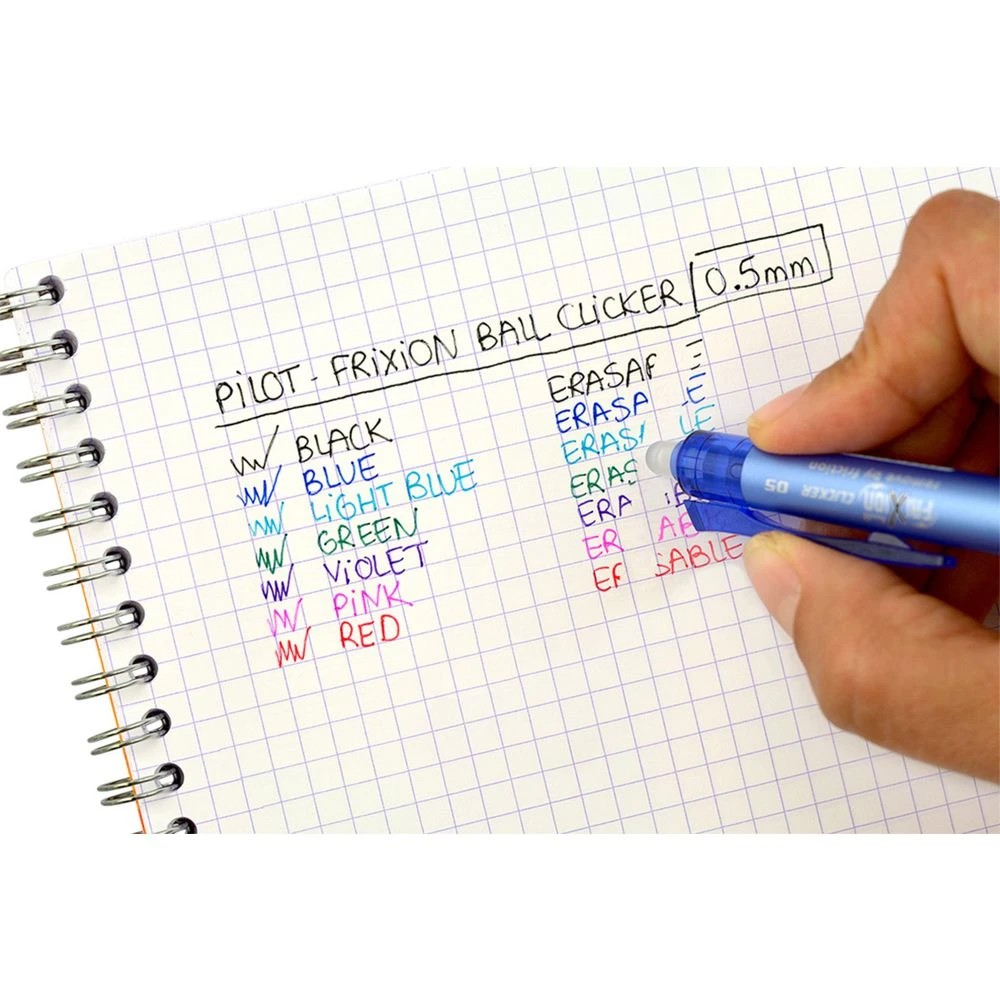 PiLOT - FRiXiON BALL CLiCKER 0.5mm
BLACK ERASA E
BLUE ERASA E
LiGHT BLUE ERAS LE
GREEN ERAS
ViOLET ERA
PiNK ER AB
RED E SABLE
FRiXion CLICKER 05
Remove by friction